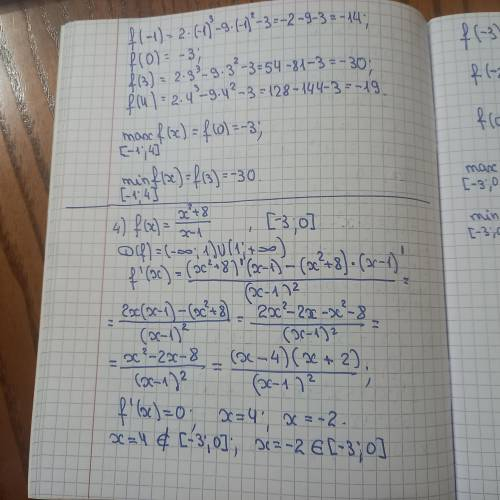 f(-1) = 2·(-1)³-9·(-1)²-3=-2-9-3=-14;
f(0) = -3;
f(3) = 2·3³-9·3²-3=54-81-3=-30;
f(4) = 2·4³-9·4²-3=128-144-3=-19.
max f(x) = f(0)=-3;
[-1;4]
min f(x)=f(3)=-30.
[-1;4]
4) f(x)= (x²+8)/(x-1) , [-3;0]
D(f)=(-∞;1)∪(1;+∞)
f'(x) = ((x²+8)'(x-1)-(x²+8)·(x-1)')/(x-1)² =
= (2x(x-1)-(x²+8))/(x-1)² = (2x²-2x-x²-8)/(x-1)² =
= (x²-2x-8)/(x-1)² = ((x-4)(x+2))/(x-1)² ;
f'(x)=0; x=4; x=-2.
x=4 ∉ [-3;0]; x=-2 ∈ [-3;0]
f(-3)
f(-2
f(0
max
[-3;0
min
[-3;0